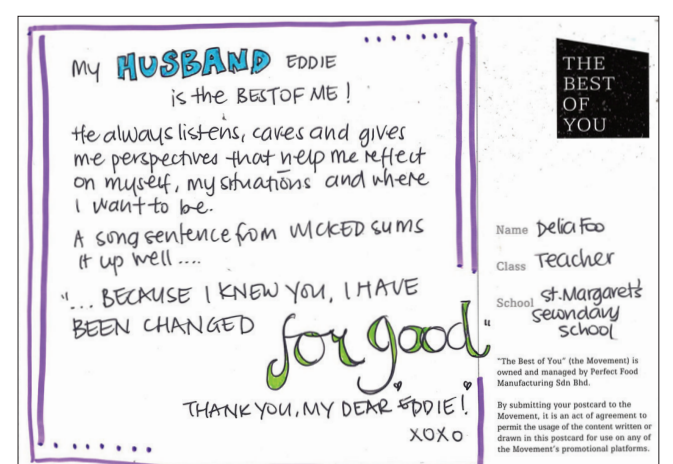 My HUSBAND EDDIE
is the BEST OF ME!
He always listens, cares and gives
me perspectives that help me reflect
on myself, my situations and where
I want to be.
A song sentence from WICKED sums
it up well....
"... BECAUSE I KNEW YOU, I HAVE
BEEN CHANGED for good"
THANK YOU, MY DEAR EDDIE!
XOXO
THE
BEST
OF
YOU
Name Delia Foo
Class Teacher
School St. Margaret's
Secondary
School
"The Best of You" (the Movement) is
owned and managed by Perfect Food
Manufacturing Sdn Bhd.
By submitting your postcard to the
Movement, it is an act of agreement to
permit the usage of the content written or
drawn in this postcard for use on any of
the Movement's promotional platforms.